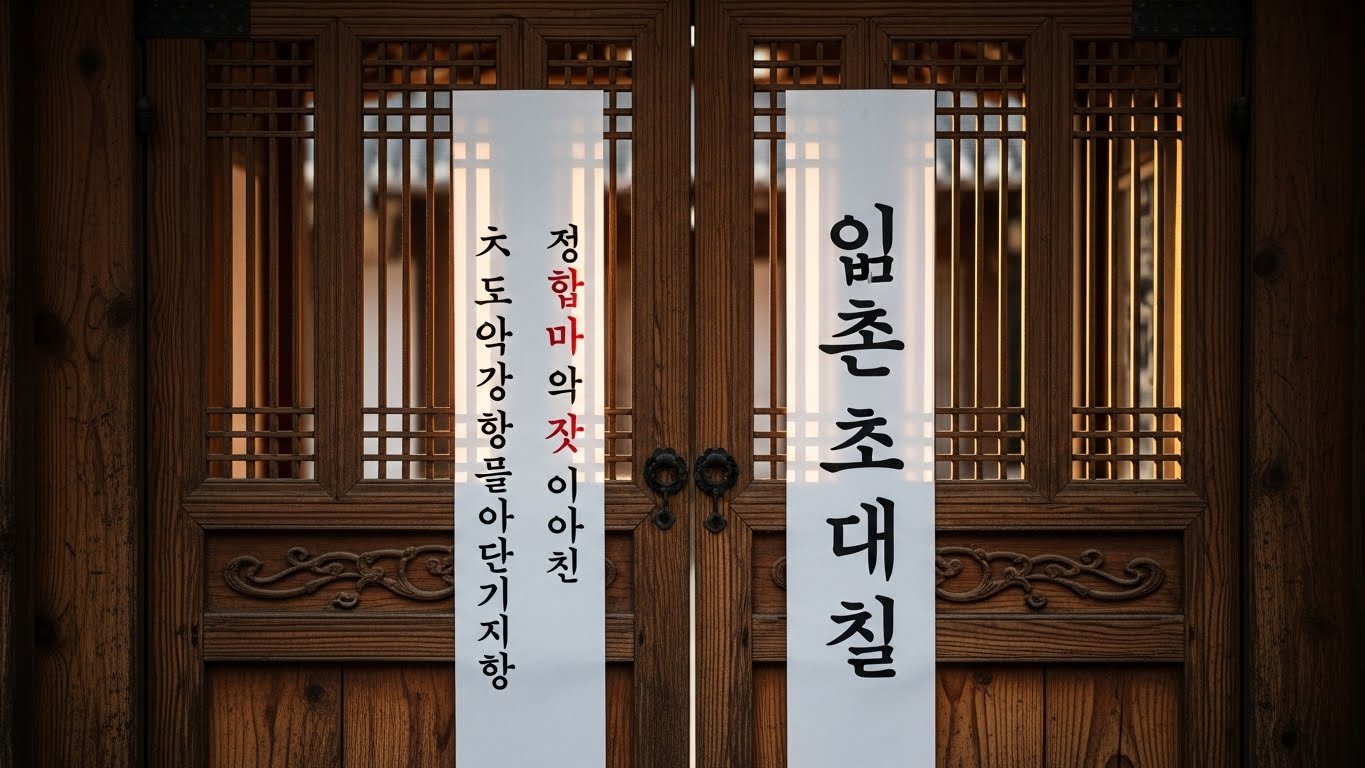 임촌초대칠
정합마악잣이아친
ㅊ도악강항믈아단기지항